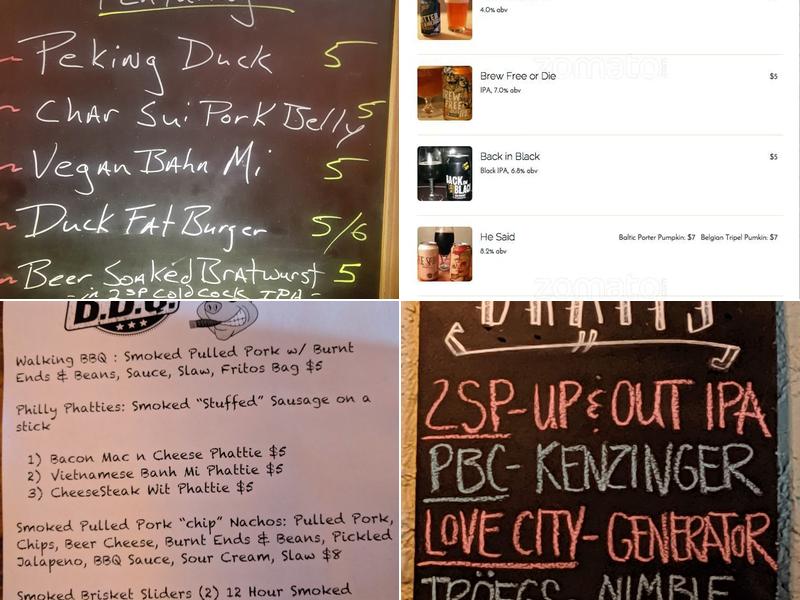 Peking Duck 5
Char Sui Pork Belly 5
Vegan Bahn Mi 5
Duck Fat Burger 5/6
Beer Soaked Bratwurst 5
- in 2SP Cold Cock IPA -
4.0% abv
zomato
Brew Free or Die $5
IPA, 7.0% abv
Back in Black $5
Black IPA, 6.8% abv
He Said Baltic Porter Pumpkin: $7 Belgian Tripel Pumkin: $7
8.2% abv
zomato
B.B.Q.
Walking BBQ : Smoked Pulled Pork w/ Burnt
Ends & Beans, Sauce, Slaw, Fritos Bag $5
Philly Phatties: Smoked "Stuffed" Sausage on a
stick
1) Bacon Mac n Cheese Phattie $5
2) Vietnamese Banh Mi Phattie $5
3) CheeseSteak Wit Phattie $5
Smoked Pulled Pork "chip" Nachos: Pulled Pork,
Chips, Beer Cheese, Burnt Ends & Beans, Pickled
Jalapeno, BBQ Sauce, Sour Cream, Slaw $8
Smoked Brisket Sliders (2) 12 Hour Smoked
DRAFTS
2SP-UP & OUT IPA
PBC-KENZINGER
LOVE CITY-GENERATOR
TRÖEGS-NIMBLE